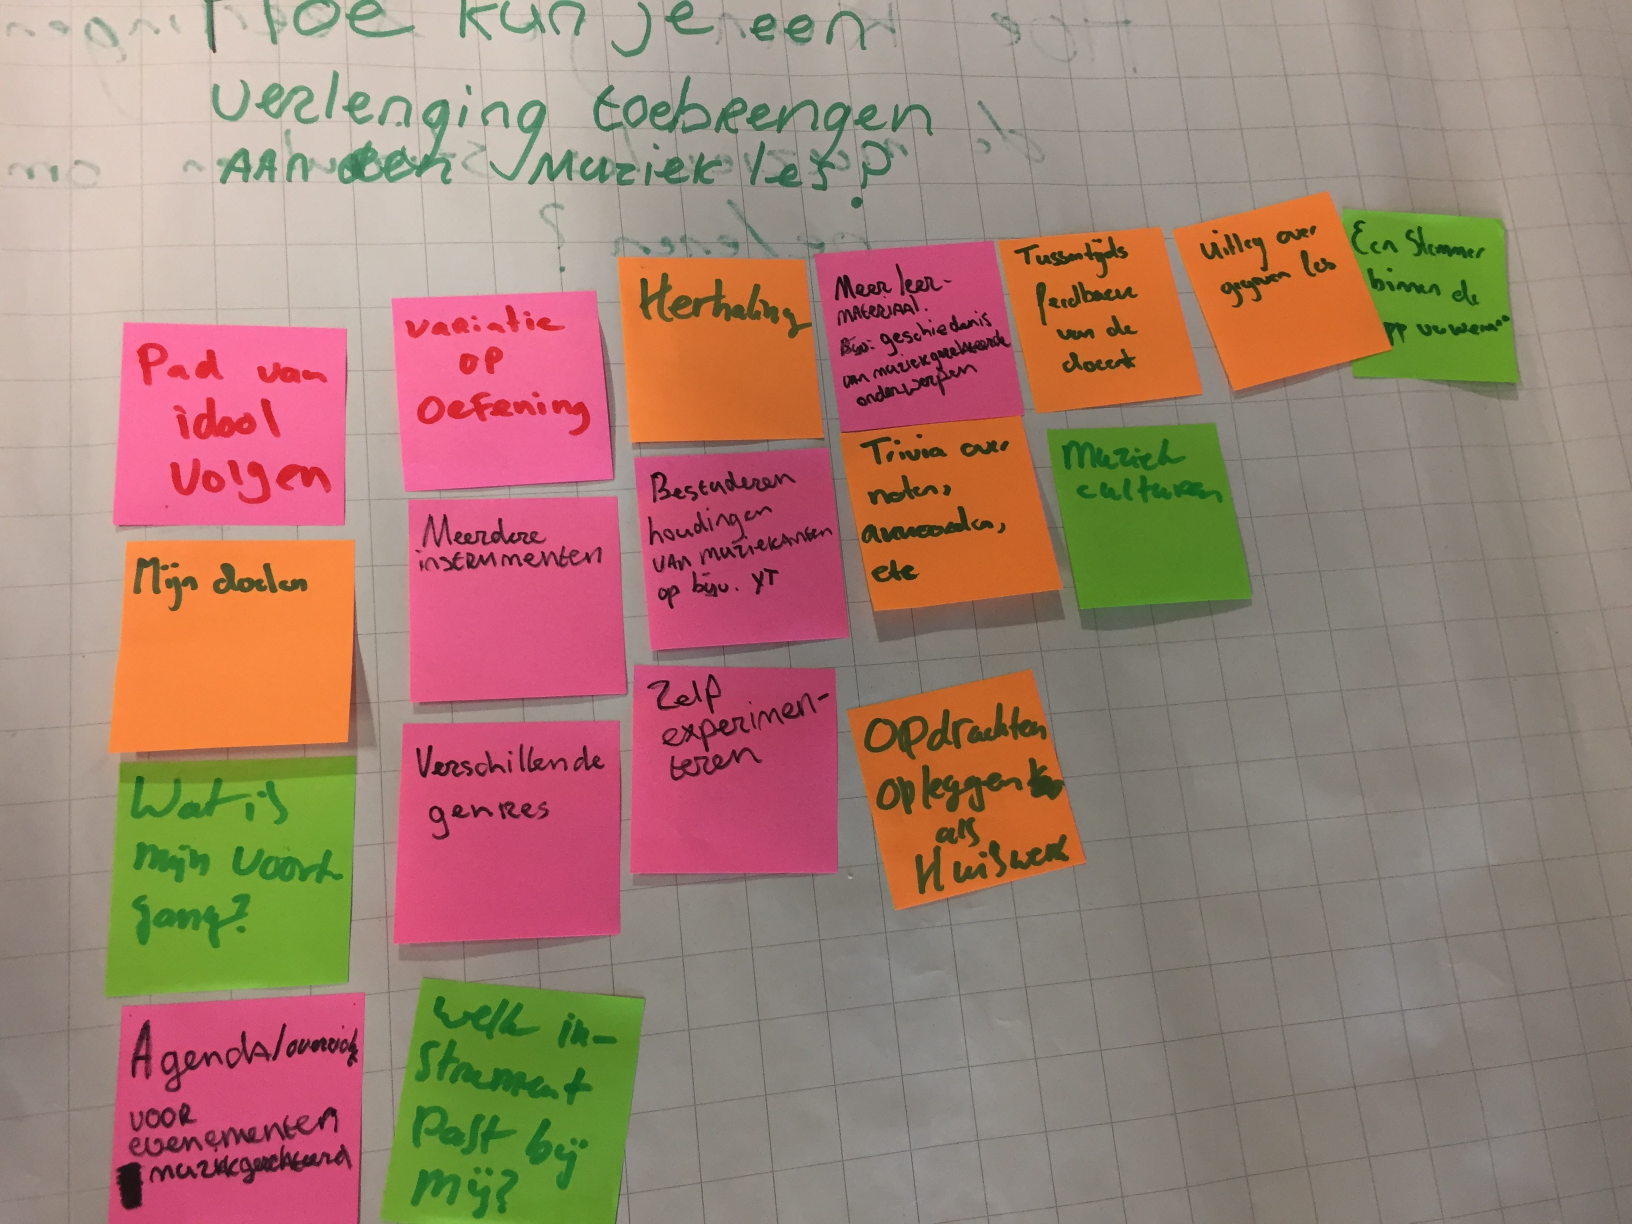 Hoe kun je een
verlenging toebrengen
AAN een Muziekles?
Pad van
idool
volgen
Mijn doelen
Wat is
mijn voort
gang?
Agenda/overzicht
VOOR
evenementen
muziekgerelateerd
variatie
op
oefening
Meerdere
instrumenten
Verschillende
genres
Welk in-
strument
Past bij
mij?
Herhaling
Bestuderen
houdingen
van muziekanten
op bijv. YT
Zelf
experimen-
teren
Meer leer-
materiaal.
Bijv: geschiedenis
van muziekgerelateerde
onderwerpen
Trivia over
noten,
accoorden,
etc
Opdrachten
opleggen
als
Huiswerk
Tussentijds
feedback
van de
docent
Muziek
culturen
Uitleg over
gegeven les
Een Stemmer
binnen de